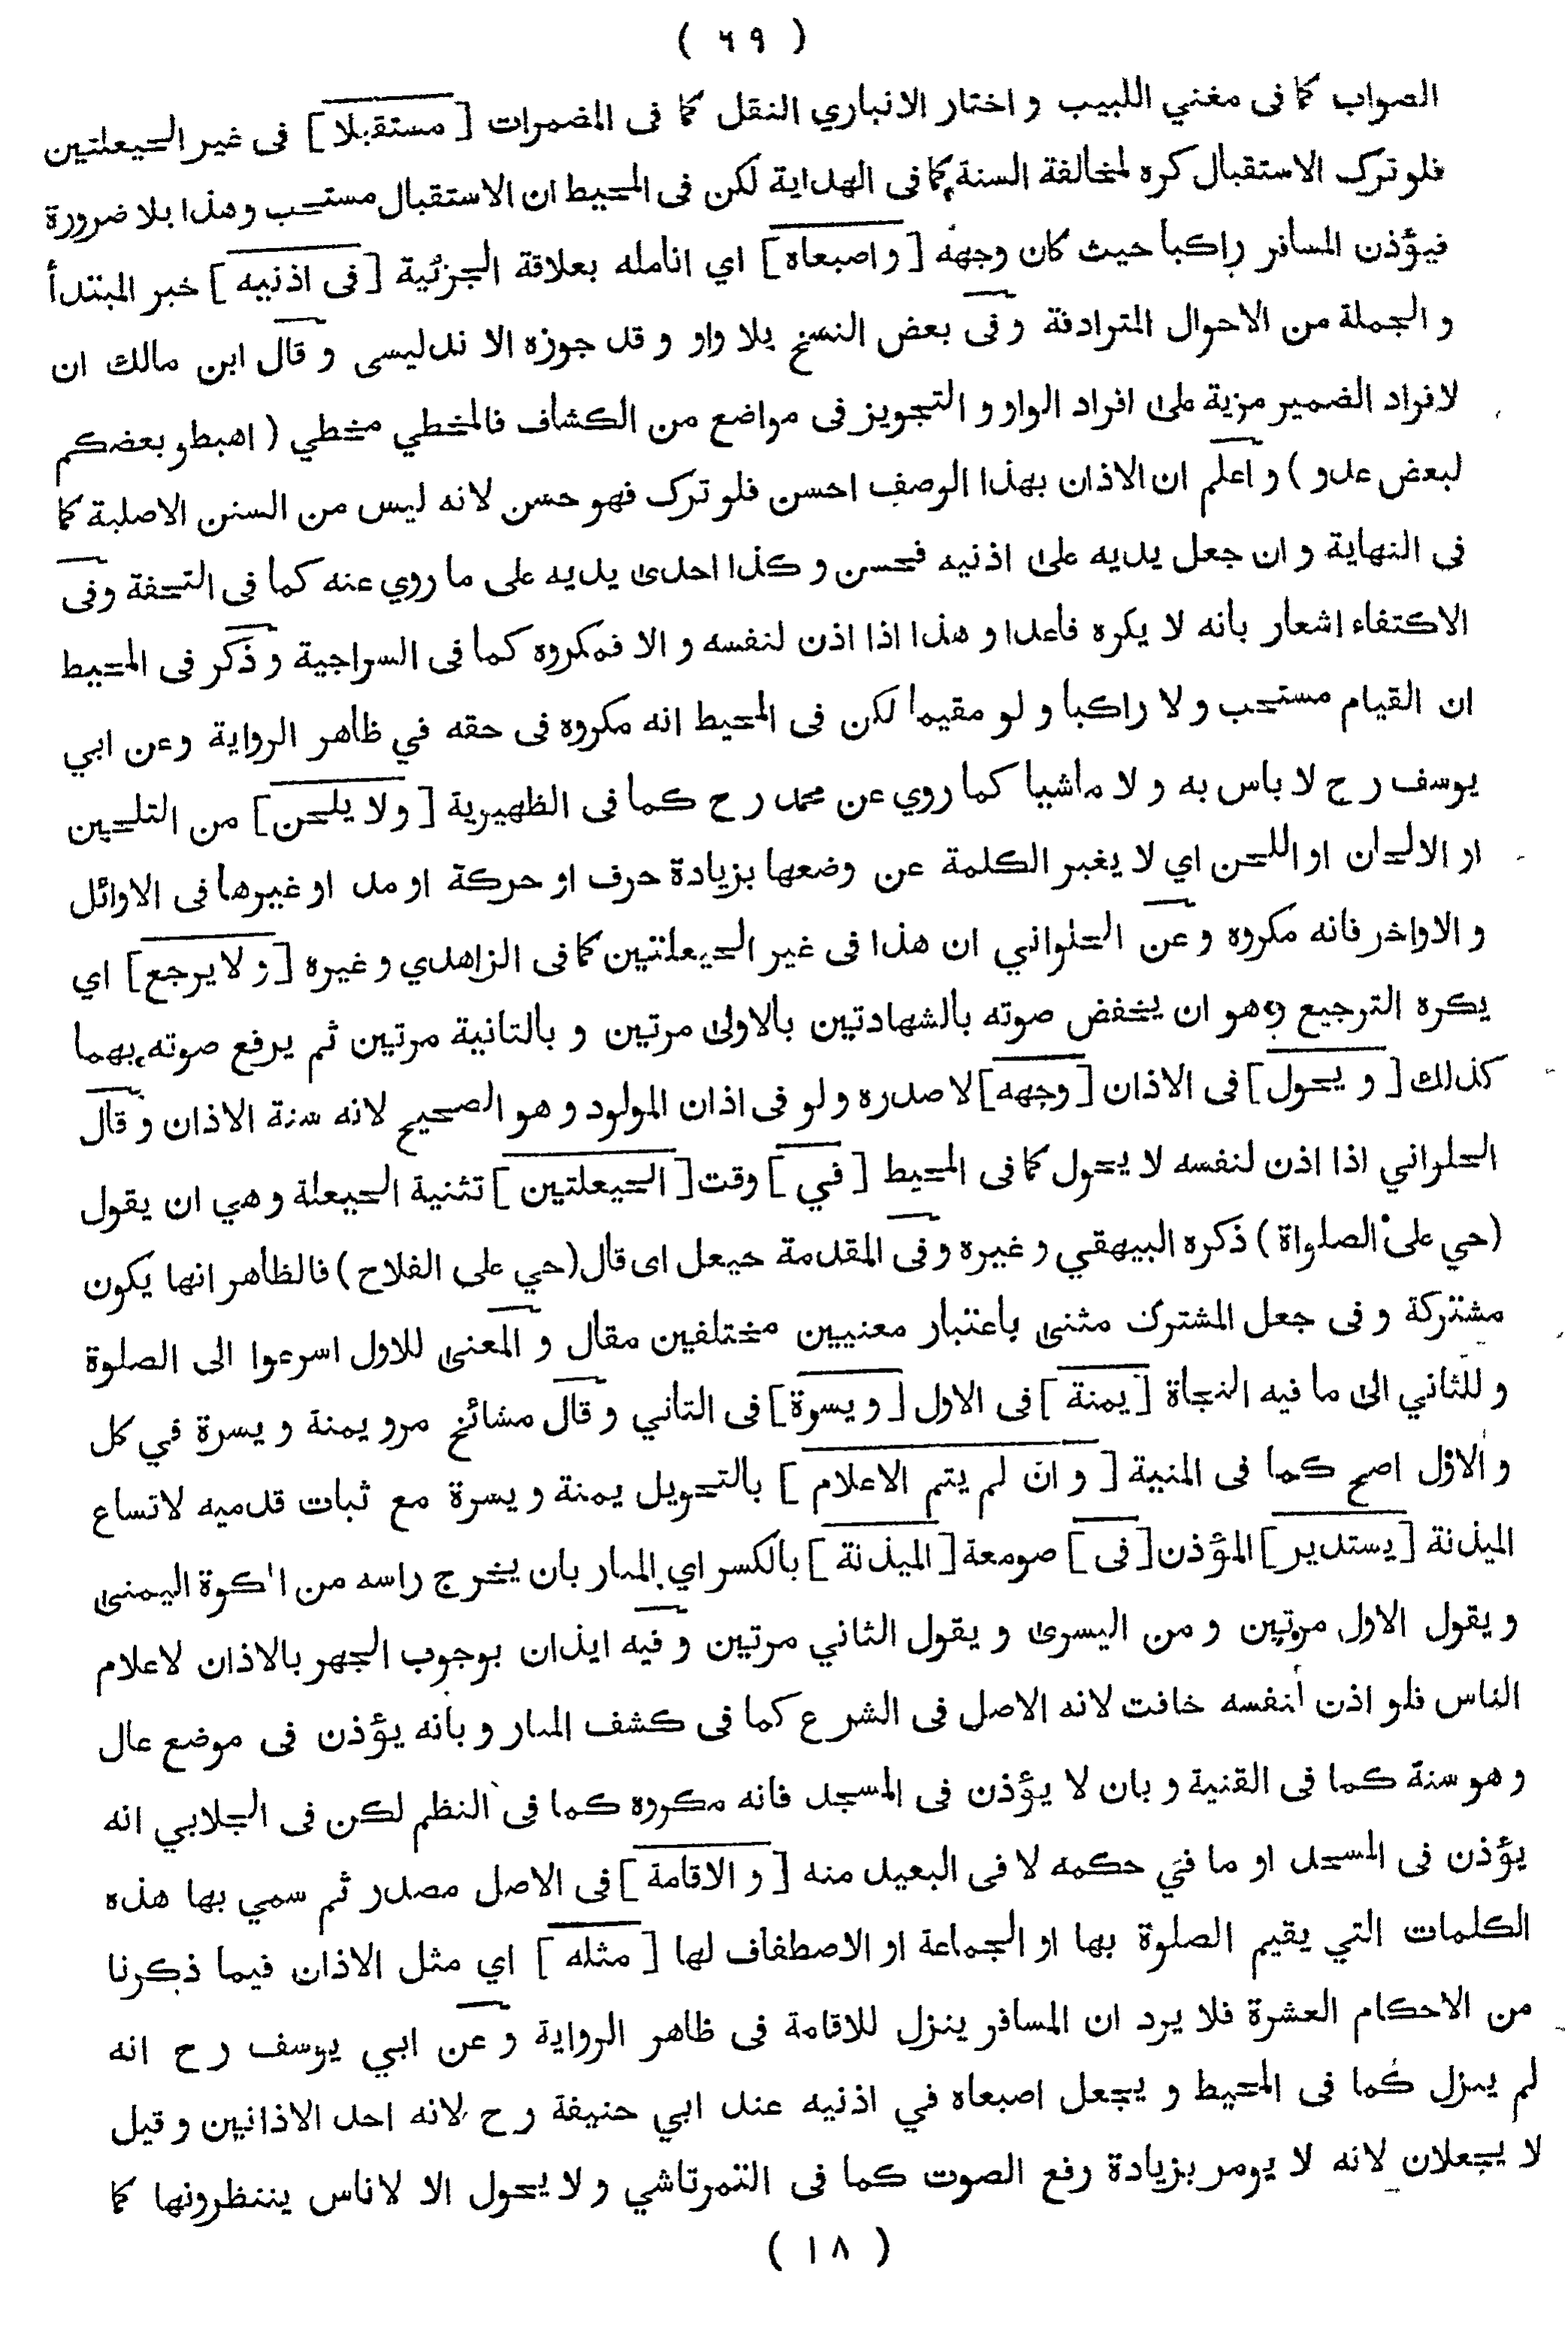 ( ٦٩ )
الصواب كما فى مغني اللبيب و اختار الانباري النقل كما فى المضمرات [ مستقبلا ] فى غير الحيعلتين
فلو ترك الاستقبال كره لمخالفة السنة كما فى الهداية لكن فى المحيط ان الاستقبال مستحب و هذا بلا ضرورة
فيؤذن المسافر راكبا حيث كان وجهه [ و اصبعاه ] اي انامله بعلاقة الجزئية [ فى اذنيه ] خبر المبتدأ
و الجملة من الاحوال المترادفة و فى بعض النسخ بلا واو و قد جوزه الا ندليسى و قال ابن مالك ان
لافراد الضمير مزية على افراد الواو و التجويز فى مواضع من الكشاف فالمخطي مخطي ( اهبطو بعضكم
لبعض عدو ) و اعلم ان الاذان بهذا الوصف احسن فلو ترك فهو حسن لانه ليس من السنن الاصلية كما
فى النهاية و ان جعل يديه على اذنيه فحسن و كذا احدى يديه على ما روي عنه كما فى التحفة وفى
الاكتفاء اشعار بانه لا يكره قاعدا و هذا اذا اذن لنفسه و الا فمكروه كما فى السراجية و ذكر فى المحيط
ان القيام مستحب و لا راكبا و لو مقيما لكن فى المحيط انه مكروه فى حقه في ظاهر الرواية وعن ابي
يوسف ر ح لا باس به و لا ماشيا كما روي عن محمد ر ح كما فى الظهيرية [ و لا يلحن ] من التلحين
او الالحان او اللحن اي لا يغير الكلمة عن وضعها بزيادة حرف او حركة او مد او غيرها فى الاوائل
و الاواخر فانه مكروه و عن الحلواني ان هذا فى غير الحيعلتين كما فى الزاهدي و غيره [ و لا يرجع ] اي
يكره الترجيع و هو ان يخفض صوته بالشهادتين بالاولى مرتين و بالثانية مرتين ثم يرفع صوته بهما
كذلك [ و يحول ] فى الاذان [ وجهه ] لا صدره و لو فى اذان المولود و هو الصحيح لانه سنة الاذان و قال
الحلواني اذا اذن لنفسه لا يحول كما فى المحيط [ في ] وقت [ الحيعلتين ] تثنية الحيعلة و هي ان يقول
(حي على الصلواة ) ذكره البيهقي و غيره و فى المقدمة حيعل اى قال (حي على الفلاح ) فالظاهر انها يكون
مشتركة و فى جعل المشترك مثنى باعتبار معنيين مختلفين مقال و المعنى للاول اسرعوا الى الصلوة
و للثاني الى ما فيه النجاة [ يمنة ] فى الاول [ و يسرة ] فى الثاني و قال مشائخ مرو يمنة و يسرة في كل
و الاول اصح كما فى المنية [ و ان لم يتم الاعلام ] بالتحويل يمنة و يسرة مع ثبات قدميه لاتساع
الميذنة [ يستدير ] المؤذن [ فى ] صومعة [ الميذنة ] بالكسر اي المنار بان يخرج راسه من الكوة اليمنى
و يقول الاول مرتين و من اليسرى و يقول الثاني مرتين و فيه ايذان بوجوب الجهر بالاذان لاعلام
الناس فلو اذن لنفسه خافت لانه الاصل فى الشرع كما فى كشف المنار و بانه يؤذن فى موضع عال
و هو سنة كما فى القنية و بان لا يؤذن فى المسجد فانه مكروه كما فى النظم لكن فى الجلابي انه
يؤذن فى المسجد او ما في حكمه لا فى البعيد منه [ و الاقامة ] فى الاصل مصدر ثم سمي بها هذه
الكلمات التي يقيم الصلوة بها او الجماعة او الاصطفاف لها [ مثله ] اي مثل الاذان فيما ذكرنا
من الاحكام العشرة فلا يرد ان المسافر ينزل للاقامة فى ظاهر الرواية و عن ابي يوسف ر ح انه
لم ينزل كما فى المحيط و يجعل اصبعاه في اذنيه عند ابي حنيفة ر ح لانه احد الاذانين و قيل
لا يجعلان لانه لا يومر بزيادة رفع الصوت كما فى التمرتاشي و لا يحول الا لاناس ينتظرونها كما
( ١٨ )